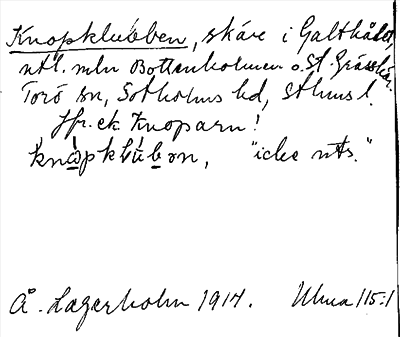 Knopklubben, skäre i Galthålet,
utl. mln Bottenholmen o. St. Gråsskär.
Torö sn, Sotholms hd, Sthlms l.
Jfr. ck Knoparn!
"icke uts."
Å. Lagerholm 1914. Ulma 115:1